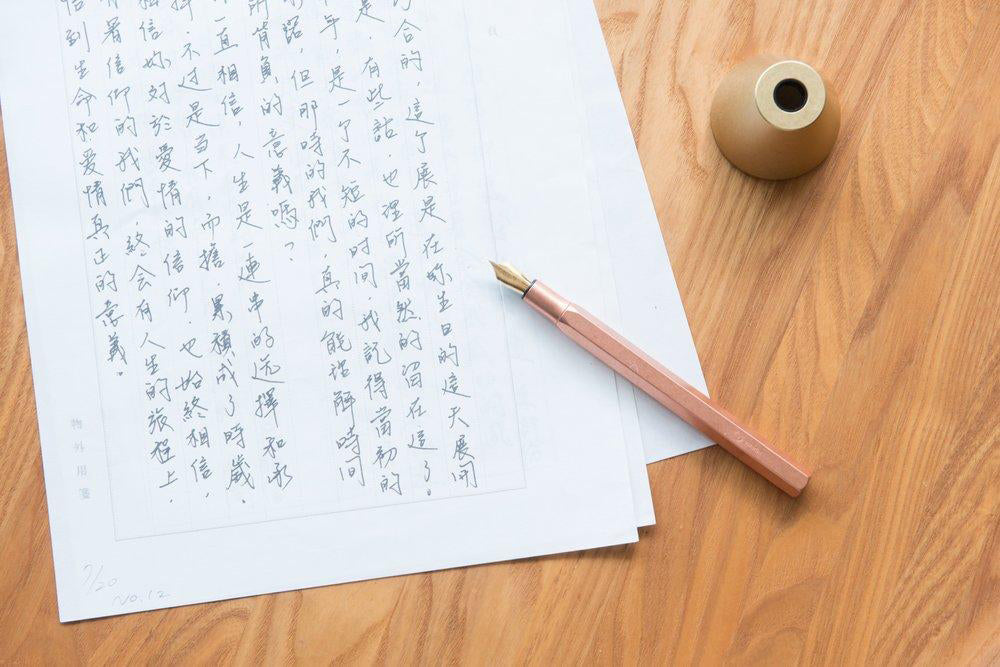 合的，這个展是在妳生日的這天展開
是，有些話，也理所當然的留在這了。
年，是一个不短的时间，我記得當初的
們，但那時的我們，真的能理解時間
所背負的意義嗎？
一直相信，人生是一連串的选擇和承
擇，不过是当下，而擔，累積成了時歲。
相信妳对於愛情的信仰，也始終相信，
有着信仰的我們，終会有人生的旅程上，
悟到生命和爱情真正的意義。
物外用箋
7/20
No.12